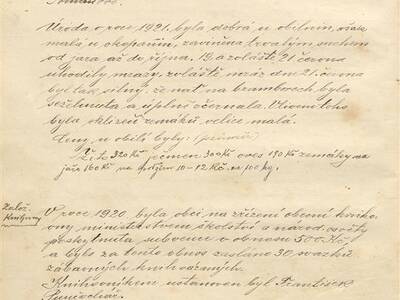 Úroda v roce 1921 byla dobrá v obilním, však
malá v okopaním, zaviněna trvalým suchem
od jara až do října. 19. a zvláště 21. června
uhodily mrazy, zvláště mráz dne 21. června
byl tak silný, že nať na bramborech byla
sežehnuta a úplně očernala. Vlivem toho
byla sklizeň zemáků velice malá.
Ceny u obilí byly: (průměr)
Žito 320 Kč ječmen 300 Kč oves 190 Kč zemáky na
jaře 160 Kč na podzim 10-12 Kč. za 100 kg.
Založ.
Knihovny
V roce 1920 byla obci na zřízení obecní knihov
ny ministerstvem školství a národ. osvěty
poskytnuta subvence v obnosu 500 Kč,
a bylo za tento obnos zasláno 30 svazků
zábavných knih vázaných.
Knihovníkem ustanoven byl František